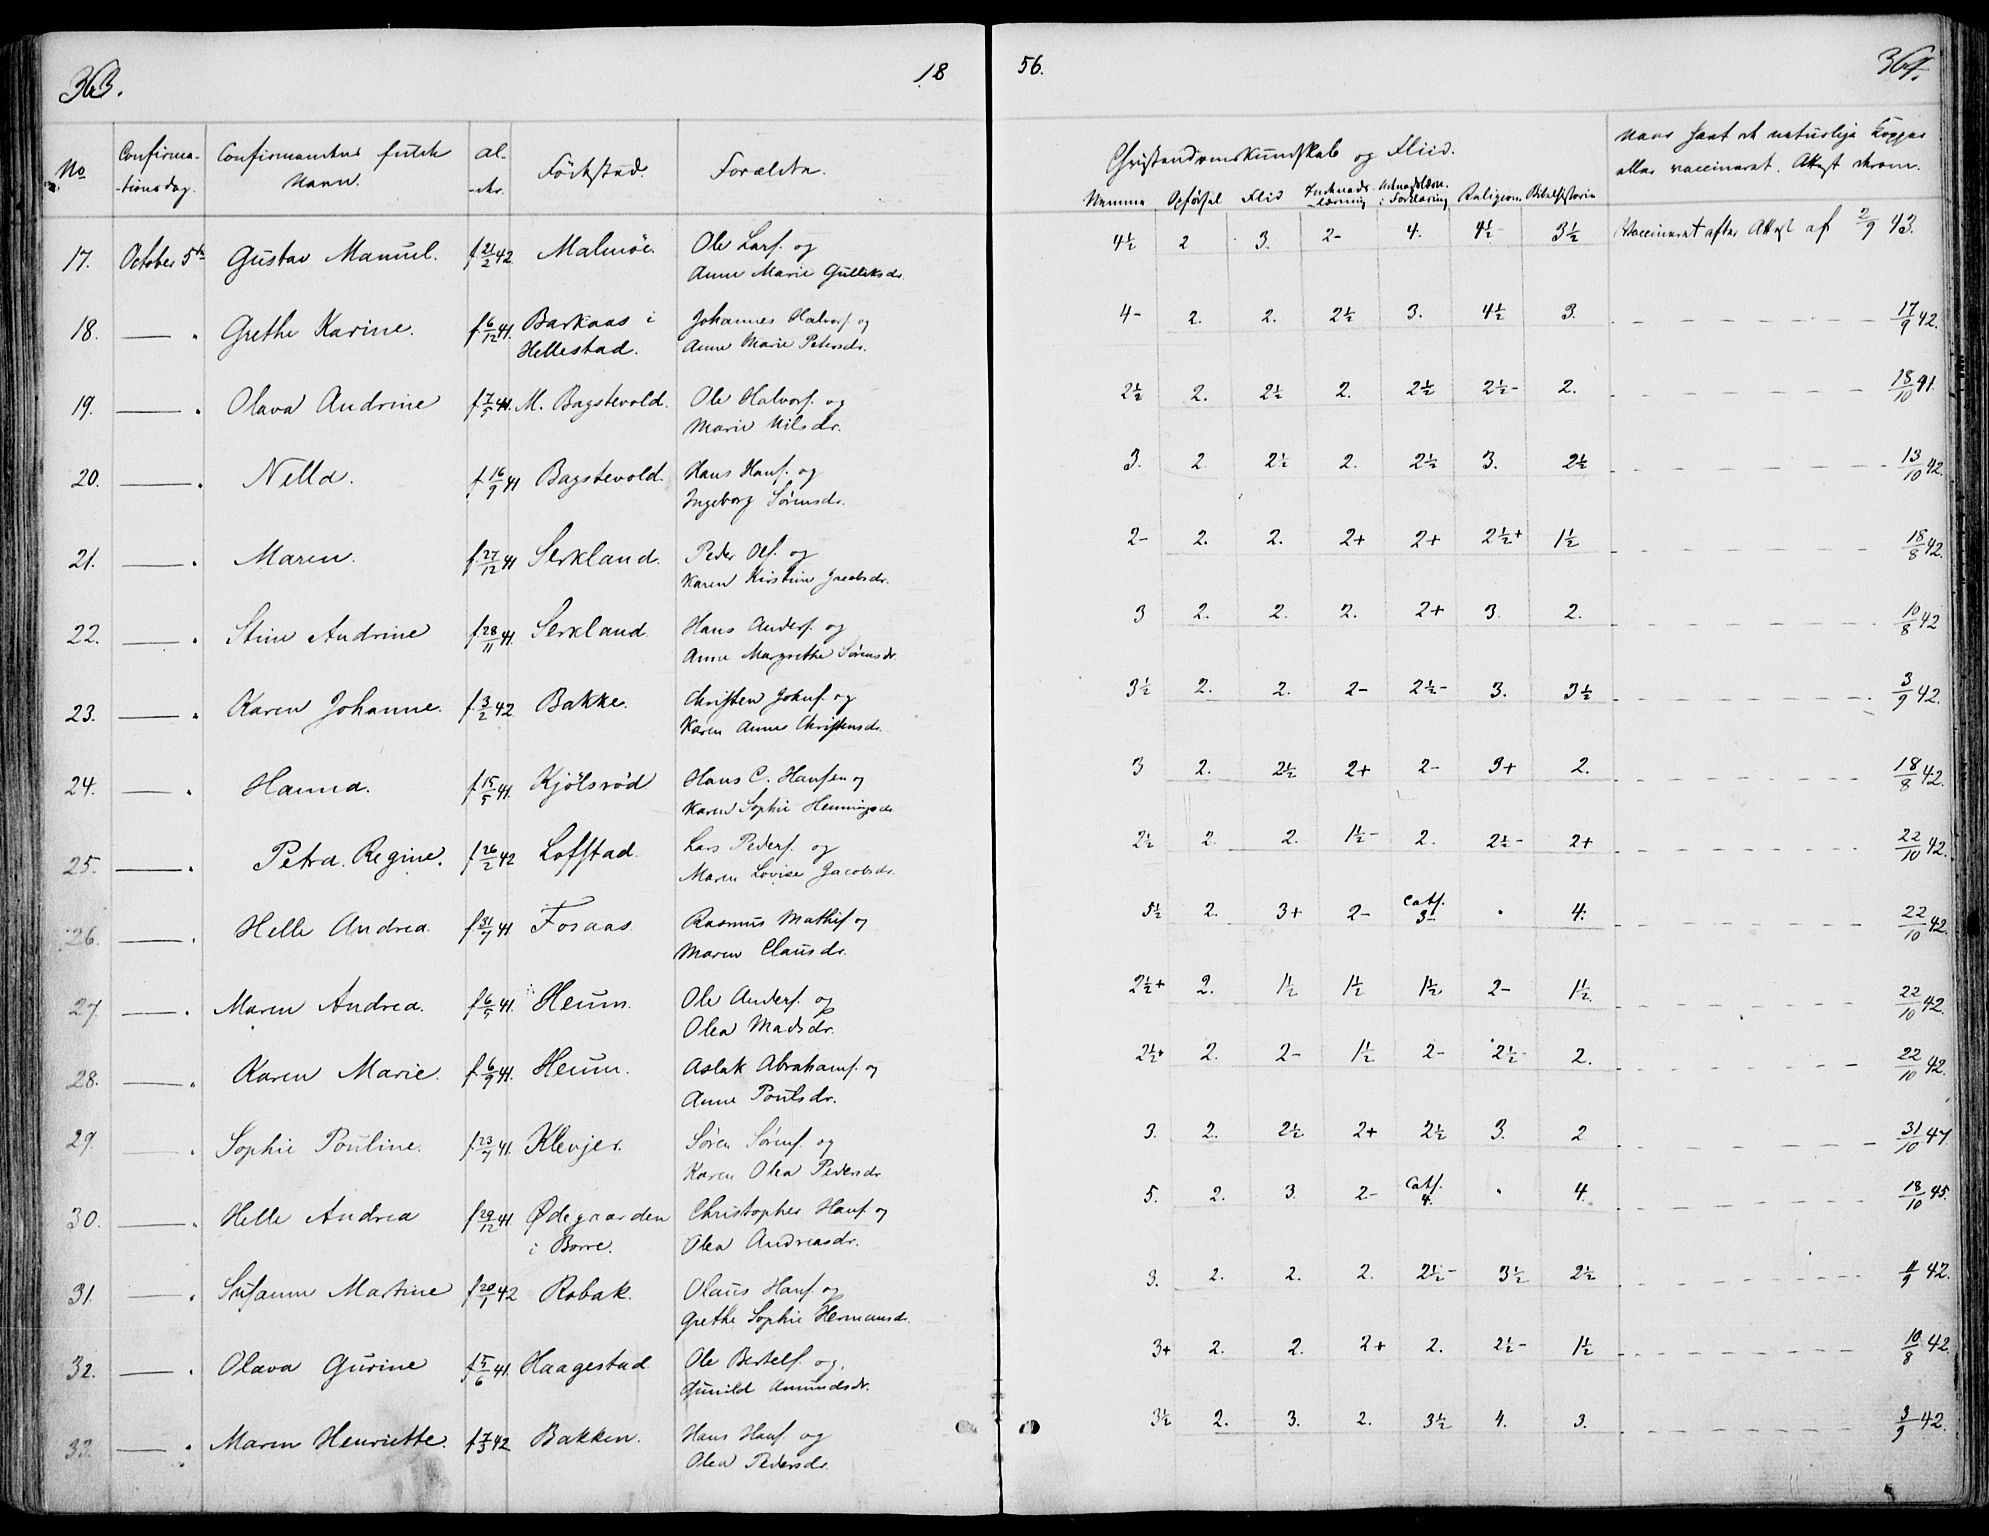 363.
18
56.
364.
No
Confirma-
-tionsdag.
Confirmantens fulde
Navn.
Al-
-der.
Födested.
Forældre.
Christendomskundskab og Fliid.
Nemme Opførsel Flid Indenads-læsning i Forklaring Religion. Bibelhistorie
Naar havt de naturlige Kopper
eller vaccineret. Attest derom.
17. October 5te Gustav Manuel. f. 21/2 42 Malmöe. Ole Lars. og
Anne Marie Gulliksdr.
4½ 2 3. 2- 4. 4½- 3½ Vaccineret efter Attest af 2/9 43.
18. — " Grethe Karine. f. 6/12 41. Barkaas i
Hellestad.
Johannes Halvors. og
Anne Marie Petersdr.
4- 2. 2. 2½ 3. 4½ 3. 17/9 42.
19. — " Olava Andrine f. 7/5 41. M. Bagstevold. Ole Halvors. og
Marie Nilsdr.
2½ 2. 2½ 2. 2½ 2½- 2. 18/10 41.
20. — " Nella. f. 16/9 41 Bagstevold. Hans Hans. og
Ingeborg Sørensdr.
3. 2. 2½ 2. 2½ 3. 2½ 13/10 42.
21. — " Maren. f. 27/12 41 Serkland. Peder Ols. og
Karen Kirstine Jacobsdr.
2- 2. 2. 2+ 2+ 2½+ 1½ 18/8 42.
22. — " Stine Andrine f. 28/11 41. Serkland Hans Anders. og
Anne Margrethe Sørensdr.
3 2. 2. 2. 2+ 3. 2. 10/8 42
23. — " Karen Johanne. f. 3/2 42 Bakke. Christen Johns. og
Karen Anne Christensdr.
3½ 2. 2. 2- 2½- 3. 3½ 3/9 42.
24. — " Hanna. f. 15/5 41. Kjölsrød Hans C. Hansen og
Karen Sophie Henningsdr
3 2. 2½ 2+ 2- 3+ 2. 18/8 42.
25. — " Petra. Regine. f. 26/2 42 Lofstad. Lars Peders. og
Maren Lovise Jacobsdr.
2½ 2. 2. 1½- 2. 2½- 2+ 22/10 42.
26. — " Helle Andrea. f. 31/7 41. Fosaas. Rasmus Mathis. og
Maren Clausdr.
5½ 2. 3+ 2- Cats.
3- " 4. 22/10 42.
27. — " Maren Andrea. f. 6/5 41. Heum. Ole Anders. og
Olea Madsdr.
2½+ 2. 1½ 1½ 1½ 2- 1½. 22/10 42.
28. — " Karen Marie. f. 6/9 41. Heum. Aslak Abrahams. og
Anne Poulsdr.
2½+ 2. 2- 1½ 2- 2½- 2. 22/10 42.
29. — " Sophie Pouline. f. 23/7 41. Klevjer. Søren Sørens. og
Karen Olea Pedersdr
3. 2. 2½ 2+ 2½ 3. 2 31/10 47
30. — " Helle Andrea f. 29/12 41 Ødegaarden
i Borre.
Christopher Hans. og
Olea Andreasdr.
5. 2. 3. 2- Cats.
4. " 4. 18/10 45.
31. — " Susanne Martine f. 20/1 42 Robak. Olaus Hans. og
Grethe Sophie Hermansdr.
3. 2. 2. 2. 2½- 3½ 2½ 42.
32. — " Olava Gurine f. 5/6 41. Haagestad Ole Bertels. og.
Gunild Amundsdr.
3+ 2. 2. 2+ 2. 2½- 1½ 10/8 42
33. — " Maren Henriette. f. 7/3 42 Bakken. Hans Hans. og
Olea Pedersdr.
3½ 2. 3. 2. 3½ 4. 3. 3/9 42.